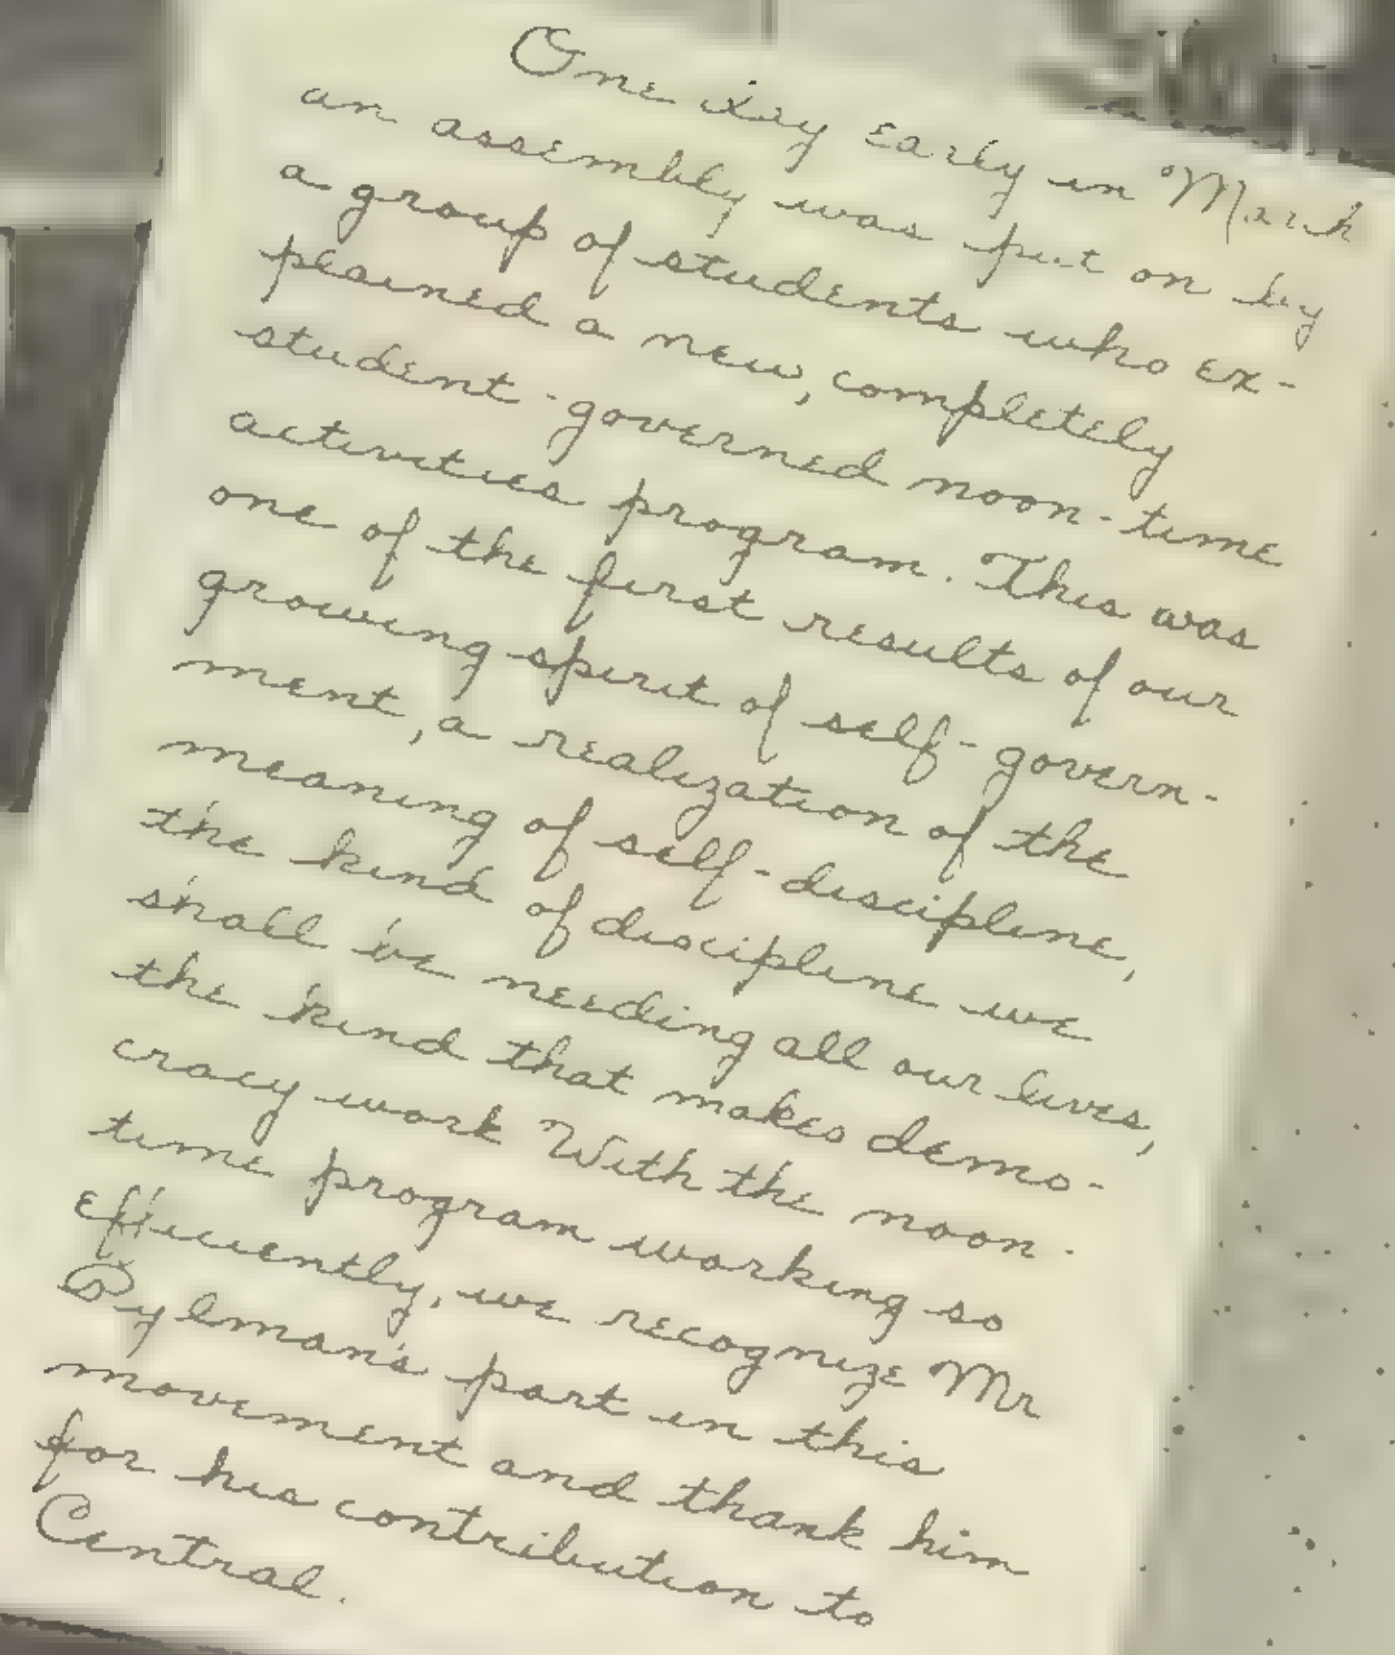 One day early in March
an assembly was put on by
a group of students who ex-
plained a new, completely
student-governed noon-time
activities program. This was
one of the first results of our
growing spirit of self-govern-
ment, a realization of the
meaning of self-discipline,
the kind of discipline we
shall be needing all our lives,
the kind that makes demo-
cracy work With the noon-
time program working so
efficiently, we recognize Mr
Pylman's part in this
movement and thank him
for his contribution to
Central.